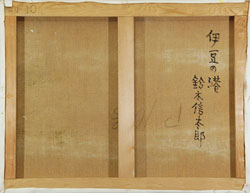 伊豆の港
鈴木信太郎